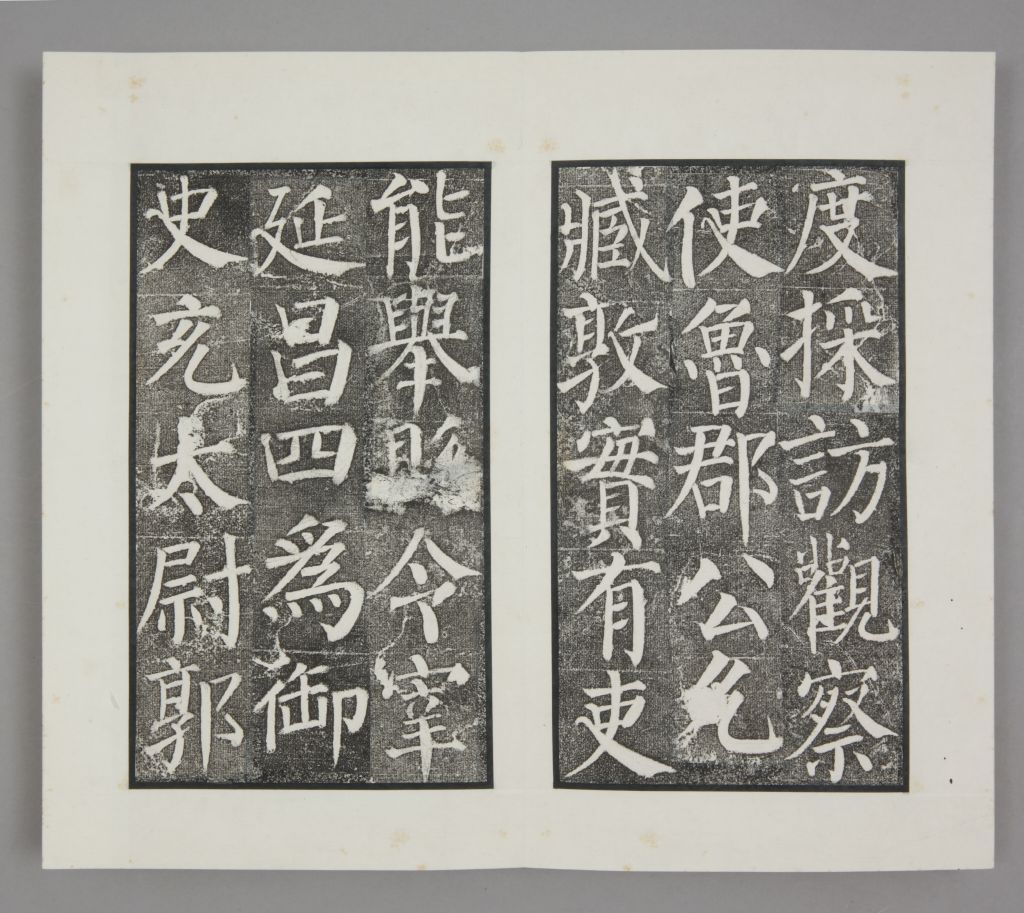 度採訪觀察
使魯郡公允
臧敦實有吏
能舉令宰
延昌四爲御
史充太尉郭